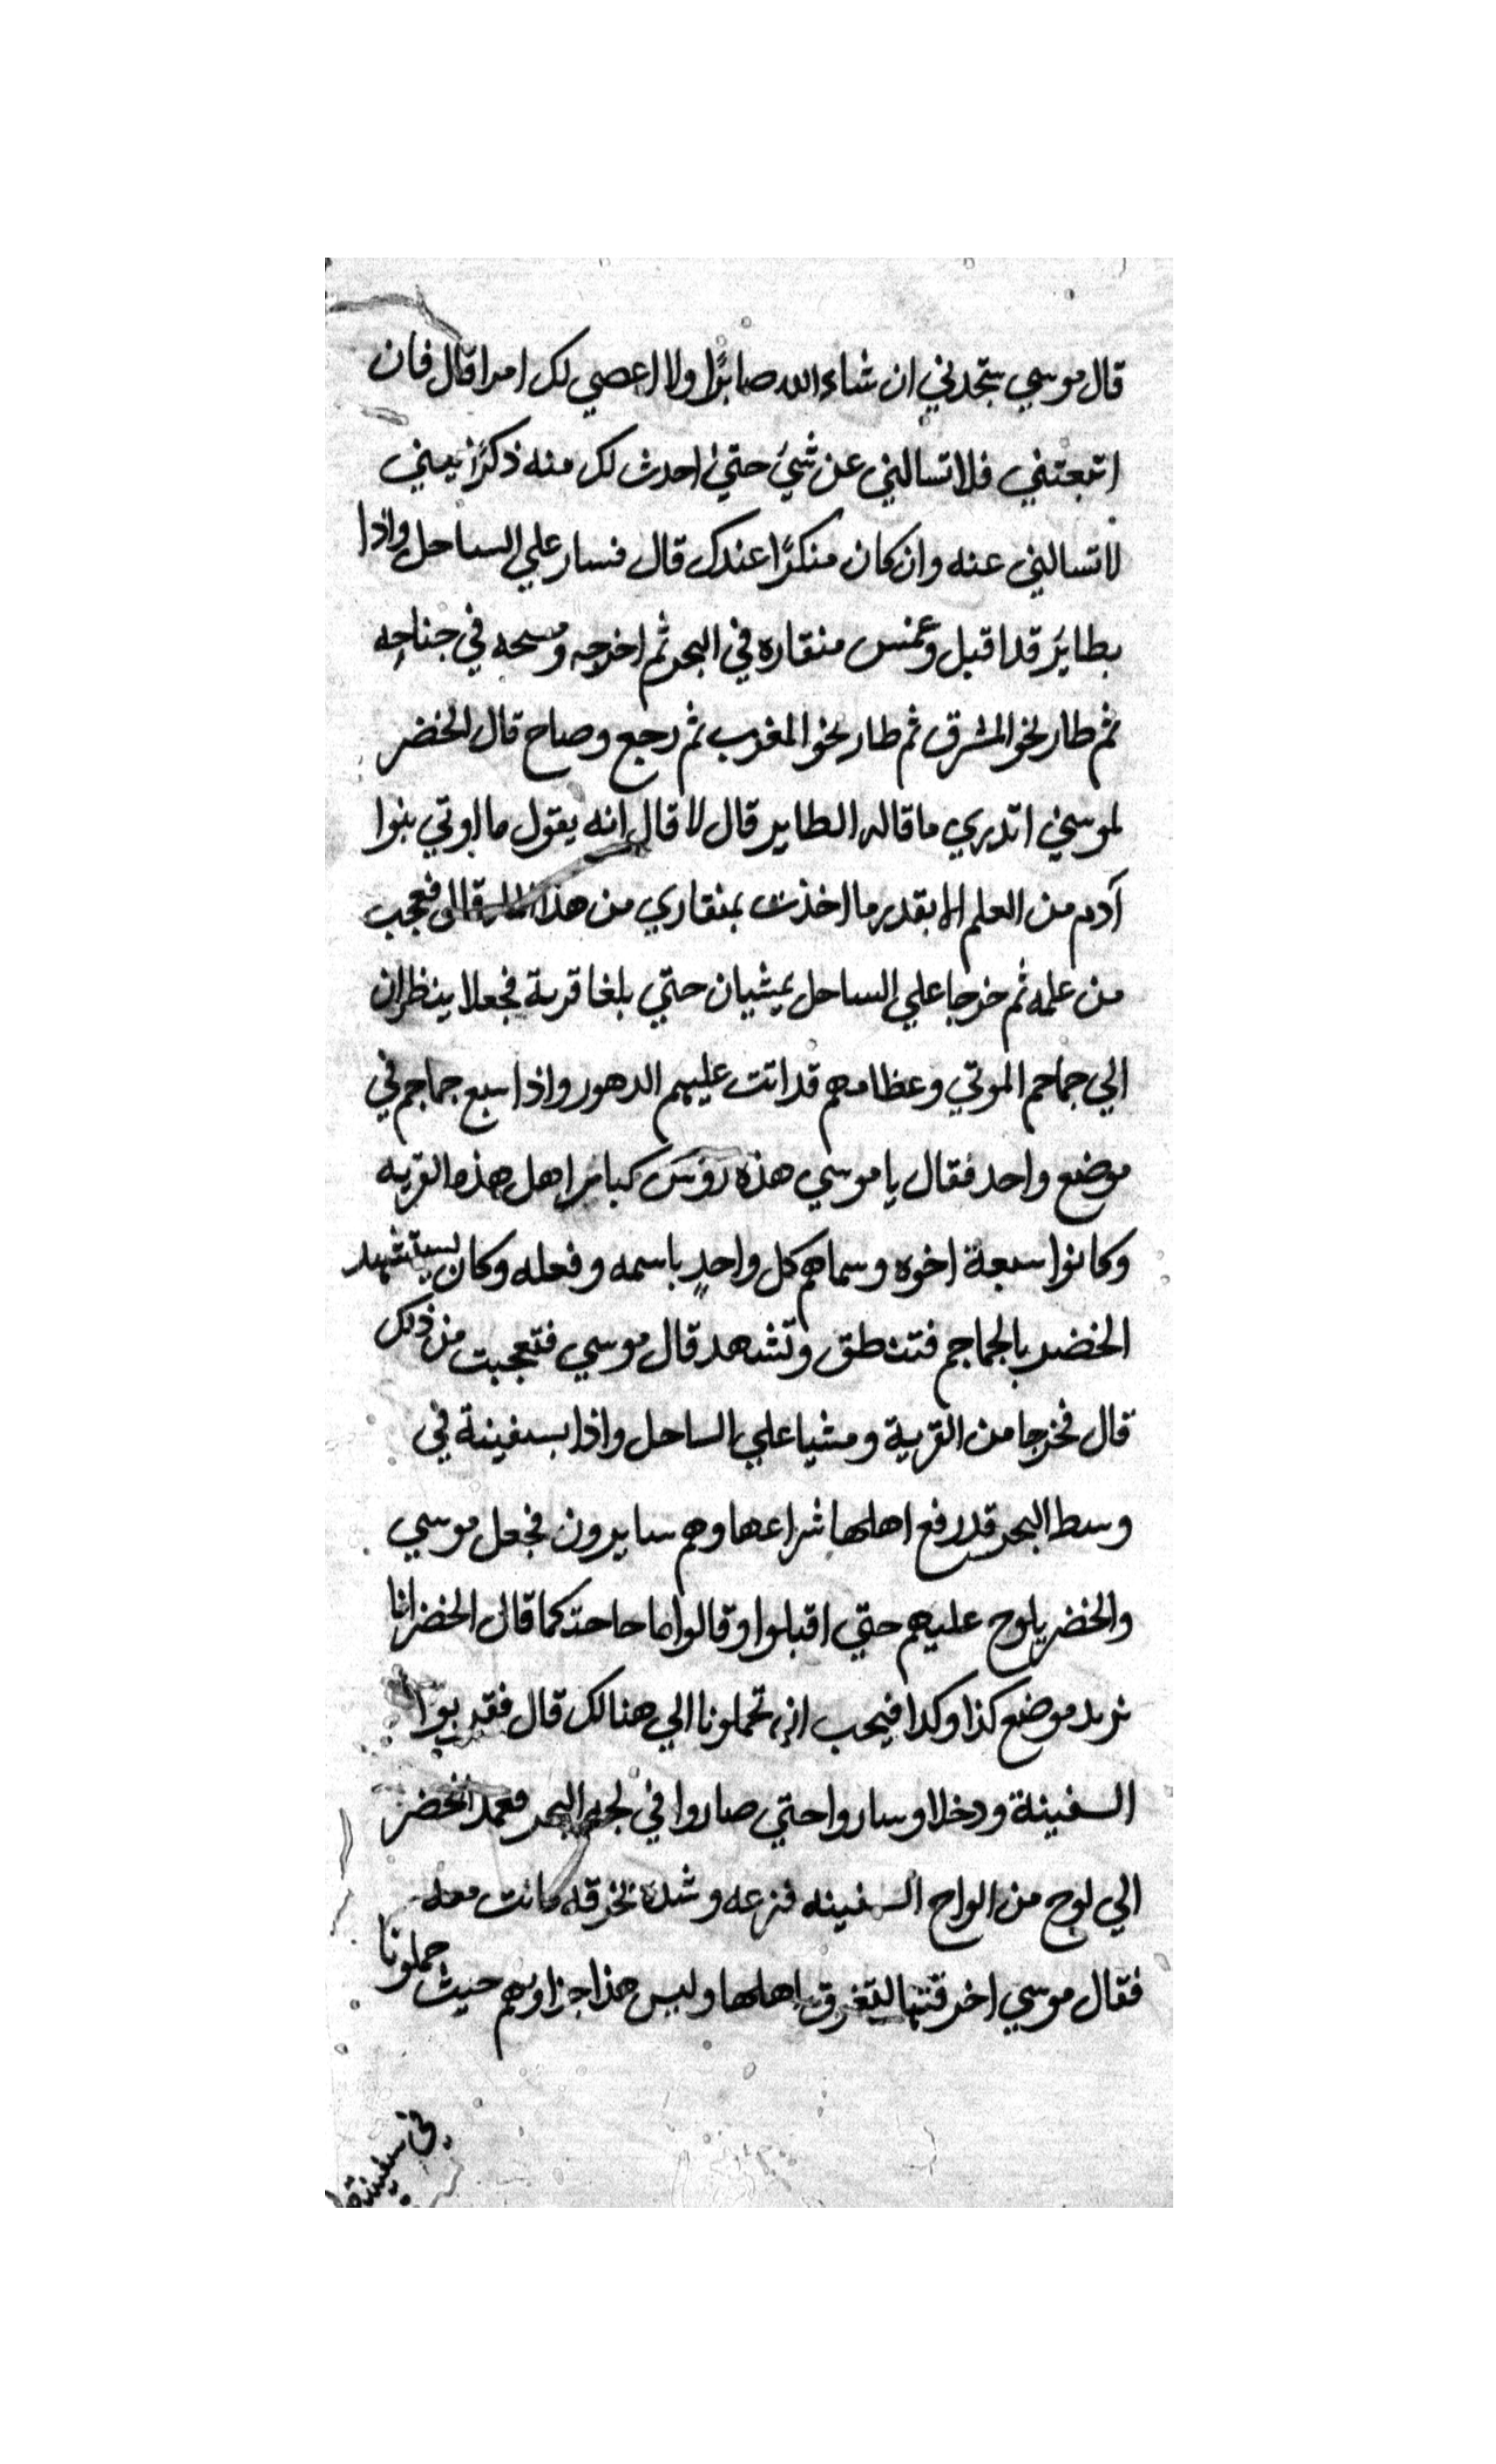 قال موسي ستجدني ان شاء الله صابرًا ولا اعصي لك امرا قال فان
اتبعتني فلا تسالني عن شيء حتي احدث لك منه ذكرًا يعني
لا تسالني عنه وان كان منكرًا عندك قال فسار علي الساحل واذا
بطاير قد اقبل وغمس منقاره في البحر ثم اخرجه ومسحه في جناحه
ثم طار نحو المشرق ثم طار نحو المغرب ثم رجع وصاح قال الخضر
لموسي اتدري ما قاله الطاير قال لا قال انه يقول ما اوتي بنوا
آدم من العلم الا بقدر ما اخذت بمنقاري من هذا قال فعجب
من علمه ثم خرجا علي الساحل يمشيان حتي بلغا قرية فجعلا ينظران
الي جماجم الموتي وعظامهم قد اتت عليهم الدهور واذا سبع جماجم في
موضع واحد فقال يا موسي هذه روس كبابر اهل هذه القريه
وكانوا سبعة اخوه وسماهم كل واحدٍ باسمه وفعله وكان يستشهد
الخضر بالجماجم فتنطق وتشهد قال موسي فتعجبت من ذلك
قال فخرجا من القرية ومشيا علي الساحل واذا بسفينة في
وسط البحر قد رفع اهلها شراعها وهم سايرون فجعل موسي
والخضر يلوح عليهم حتي اقبلوا وقالوا ما حاحتكما قال الخضر انا
نريد موضع كذا وكدا فيحب ان تحملونا الي هنالك قال فقربوا
السفينة ودخلا وساروا حتي صاروا في لجه البحر فعمد الخضر
الي لوح من الواح السفينه فنزعه وشده بخرقه كانت معه
فقال موسي اخرقتها لتغرق اهلها وليس هذا جزاوهم حيث حملونا
في سفينة